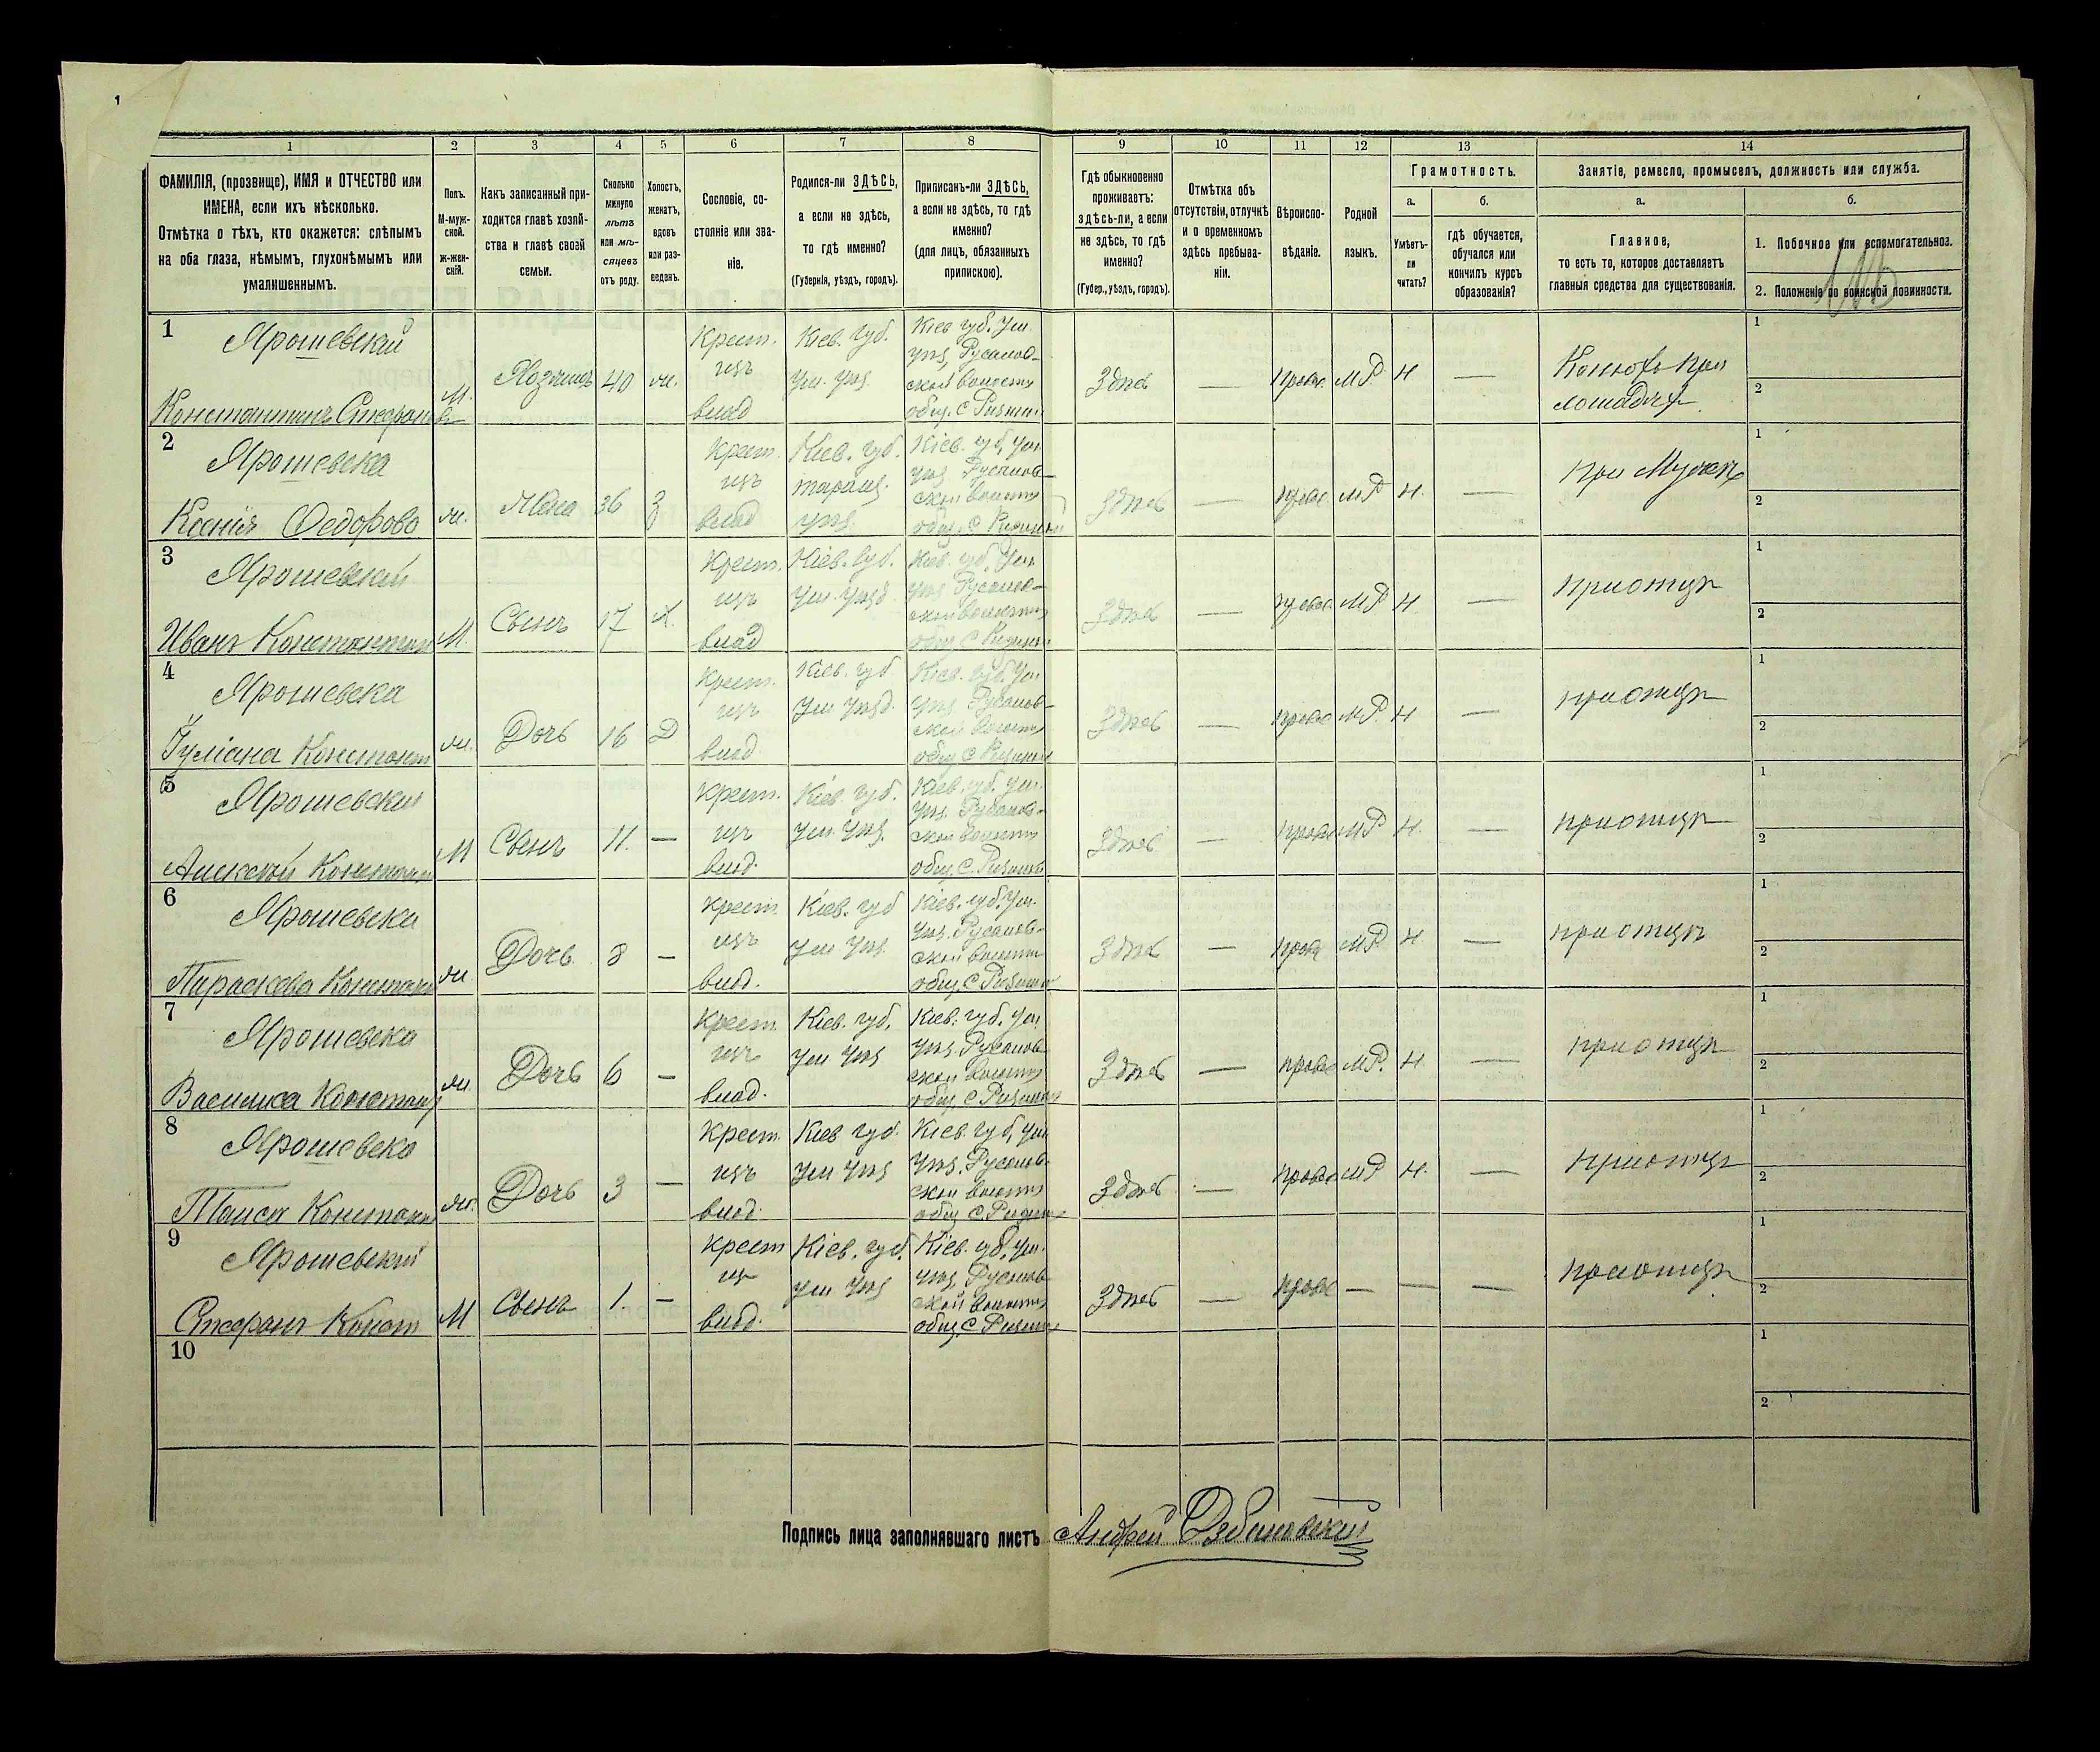 1 2 3 4 5 6 7 8 9 10 11 12 13 14
ФАМИЛІЯ, (прозвище), ИМЯ и ОТЧЕСТВО или
ИМЕНА, если ихъ нѣсколько.
Отмѣтка о тѣхъ, кто окажется: слѣпымъ
на оба глаза, нѣмымъ, глухонѣмымъ или
умалишеннымъ.
Полъ.
М-муж-
ской.
ж-жен-
скій.
Какъ записанный при-
ходится главѣ хозяй-
ства и главѣ своей
семьи.
Сколько
минуло
лѣтъ
или мѣ-
сяцевъ
отъ роду.
Холостъ,
женатъ,
вдовъ
или раз-
веденъ.
Сословіе, со-
стояніе или зва-
ніе.
Родился-ли ЗДѢСЬ,
а если не здѣсь,
то гдѣ именно?
(Губернія, уѣздъ, городъ).
Приписанъ-ли ЗДѢСЬ,
а если не здѣсь, то гдѣ
именно?
(для лицъ, обязанныхъ
припискою).
Гдѣ обыкновенно
проживаетъ:
здѣсь-ли, а если
не здѣсь, то гдѣ
именно?
(Губер., уѣздъ, городъ).
Отмѣтка объ
отсутствіи, отлучкѣ
и о временномъ
здѣсь пребыва-
ніи.
Вѣроиспо-
вѣданіе.
Родной
языкъ.
Грамотность.
а.
Умѣетъ-
ли
читать?
б.
гдѣ обучается,
обучался или
кончилъ курсъ
образованія?
Занятіе, ремесло, промыселъ, должность или служба.
а.
Главное,
то есть то, которое доставляетъ
главныя средства для существованія.
б.
1. Побочное или вспомогательное.
2. Положеніе по воинской повинности.
1 Ярошевскій
Константинъ М. Хозяинъ 40 Крест. Кіев. губ. Кіев губ. Ум
изъ Ум. уѣз. уѣз, Русалов-
ской волости
влад общ. С Здѣсь — прав. МР Н — Конюхъ при
лошадяхъ
1
2
2 Ярошевска
Ксенія Федорова ж. Жена 36 З Крест. Кіев. губ. Кіев. губ, Ум
изъ таращ. уѣз Русалов-
влад уѣз. ской волости
общ. С Здѣсь — прав МР Н. — при Мужѣ
1
2
3 Ярошевскій
Иванъ М. Сынъ 17 Х. Крест. Кіев. губ. Кіев. губ. Ум
изъ Ум. уѣзд уѣз Русалов-
влад ской волости
общ С Здѣсь — прав МР Н. — при отцѣ
1
2
4 Ярошевска
Константи ж. Дочь 16 Д Крест. Кіев. губ Кіев. губ. Ум
изъ Ум уѣзд. уѣз Русалов-
влад ской волости
общ С Здѣсь — прав МР. Н — при отцѣ
1
2
5 Ярошевски
Алексѣй М Сынъ 11. — Крест. Кіев. губ. Кіев. губ. Ум.
изъ Ум. уѣз. уѣз. Русалов-
влад. ской волости
общ. С. Здѣсь — прав МР Н. — при отцѣ
1
2
6 Ярошевска
Параскева ж. Дочь 8 — Крест. Кіев. губ Кіев. губ. Ум.
изъ Ум уѣз. уѣз. Русалов-
влад. ской волости
общ. С Здѣсь — прав МР Н — при отцѣ
1
2
7 Ярошевска
Василиса ж. Дочь 6 — Крест. Кіев. губ. Кіев. губ. Ум
изъ Ум уѣз уѣз. Русалов-
влад. ской волости
общ. С Здѣсь — прав МР. Н — при отцѣ
1
2
8 Ярошевска
Таиса ж. Дочь 3 — Крест. Кіев губ. Кіев. губ, Ум
изъ Ум уѣз уѣз. Русалов-
влад. ской волости
общ С. Здѣсь — прав МР Н. — при отцѣ
1
2
9 Ярошевскій
Стефанъ Конст М Сынъ 1. — Крест Кіев. губ. Кіев. губ. Ум.
из Ум уѣз уѣз. Русалов-
влад. ской волости
общ. С Здѣсь — прав — — — при отцѣ
1
2
10
1
2
Подпись лица заполнявшаго листъ Андрей